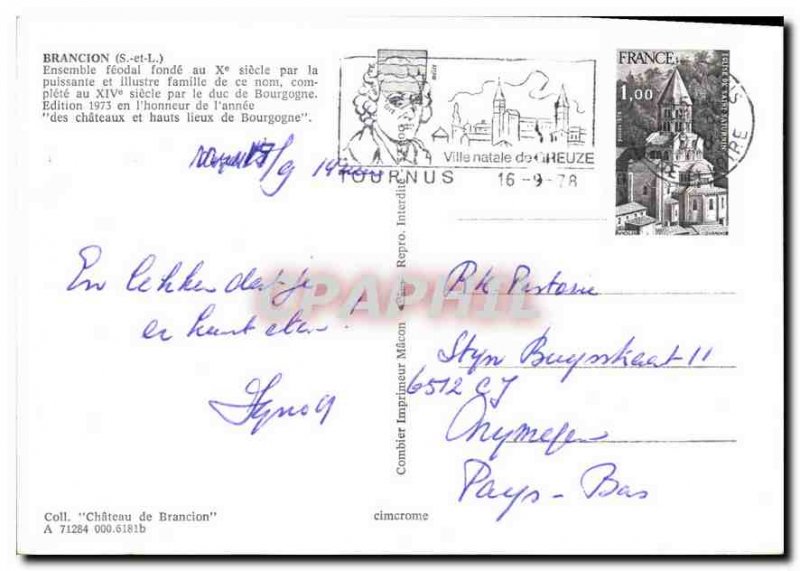 BRANCION (S.-et-L.)
Ensemble féodal fondé au Xe siècle par la
puissante et illustre famille de ce nom, com-
plété au XIVe siècle par le duc de Bourgogne.
Edition 1973 en l'honneur de l'année
"des châteaux et hauts lieux de Bourgogne".
Ville natale de GREUZE
TOURNUS 16-9-78
FRANCE
1,00
EGLISE DE SAINT SATURNIN
En lekker
Styn Buysstraat 11
6512 CJ
Nymegen
Pays-Bas
CPAPHIL
Combier Imprimeur Mâcon Repro. Interdite
Coll. "Château de Brancion"
A 71284 000.6181b
cimcrome